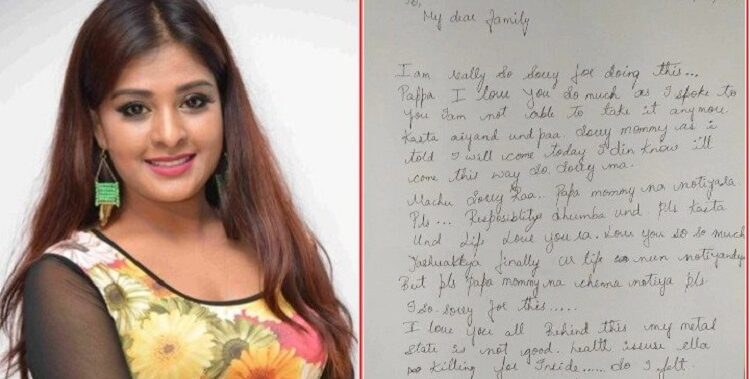 To,
My dear family
I am really so sorry for doing this...
Pappa I love you so much as I spoke to
you Iam not able to take it anymore
Kasta aiyand und paa. Sorry mommy as i
told I will come today I din know i'll
come this way so. Sorry ma.
Machu Sorry Raa.. Papa mommy na notiyala
Pls... Resposiblitys dhumba und pls Kasta
Und life Love you ra. Love you so so much
finally life nun notiyandya
But pls Papa mommy na chenna notiya pls
I so sorry for this.....
I love you all Behind this my metal
State is not good. health issuse ella
Killing for Inside..... So I felt